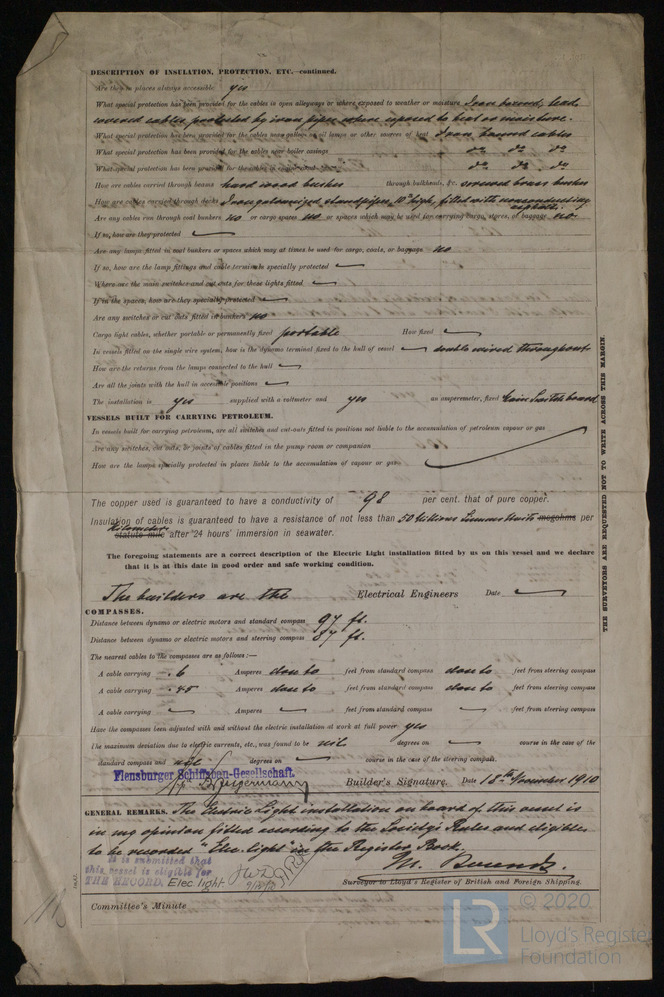 DESCRIPTION OF INSULATION, PROTECTION, ETC.—continued.
Are they in places always accessible yes
What special protection has been provided for the cables in open alleyways or where exposed to weather or moisture Iron armored, lead
covered cables protected by iron pipes where exposed to heat or moisture.
What special protection has been provided for the cables near galleys or oil lamps or other sources of heat Iron armored cables
What special protection has been provided for the cables near boiler casings do do do
What special protection has been provided for the cables in engine room do do do
How are cables carried through beams hard wood bushes through bulkheads, &c. screwed brass bushes
How are cables carried through decks Iron galvanized standpipes, 10" high, filled with nonconducting
asphalt.
Are any cables run through coal bunkers no or cargo spaces no or spaces which may be used for carrying cargo, stores, or baggage no
If so, how are they protected
Are any lamps fitted in coal bunkers or spaces which may at times be used for cargo, coals, or baggage no
If so, how are the lamp fittings and cable terminals specially protected
Where are the main switches and cut outs for these lights fitted
If in the spaces, how are they specially protected
Are any switches or cut outs fitted in bunkers no
Cargo light cables, whether portable or permanently fixed portable How fixed
In vessels fitted on the single wire system, how is the dynamo terminal fixed to the hull of vessel double wired throughout
How are the returns from the lamps connected to the hull
Are all the joints with the hull in accessible positions
The installation is yes supplied with a voltmeter and yes an amperemeter, fixed Main Switchboard
VESSELS BUILT FOR CARRYING PETROLEUM.
In vessels built for carrying petroleum, are all switches and cut-outs fitted in positions not liable to the accumulation of petroleum vapour or gas
Are any switches, cut outs, or joints of cables fitted in the pump room or companion
How are the lamps specially protected in places liable to the accumulation of vapour or gas
The copper used is guaranteed to have a conductivity of 98 per cent. that of pure copper.
Insulation of cables is guaranteed to have a resistance of not less than 50 Millions Siemens Units megohms per
Kilometer
statute mile after 24 hours' immersion in seawater.
The foregoing statements are a correct description of the Electric Light installation fitted by us on this vessel and we declare
that it is at this date in good order and safe working condition.
The builders are the Electrical Engineers Date
COMPASSES.
Distance between dynamo or electric motors and standard compass 97 ft.
Distance between dynamo or electric motors and steering compass 87 ft.
The nearest cables to the compasses are as follows:—
A cable carrying .6 Amperes close to feet from standard compass close to feet from steering compass
A cable carrying .45 Amperes close to feet from standard compass close to feet from steering compass
A cable carrying Amperes feet from standard compass feet from steering compass
Have the compasses been adjusted with and without the electric installation at work at full power yes
The maximum deviation due to electric currents, etc., was found to be nil degrees on course in the case of the
standard compass and nil degrees on course in the case of the steering compass.
Flensburger Schiffsbau-Gesellschaft.
Builder's Signature. Date 18th November 1910
GENERAL REMARKS. The Electric Light installation on board of this vessel is
in my opinion fitted according to the Society's Rules and eligible
to be recorded "Elec. light" in the Register Book.
It is submitted that
this vessel is eligible for
THE RECORD. Elec light
Surveyor to Lloyd's Register of British and Foreign Shipping.
Committee's Minute
THE SURVEYORS ARE REQUESTED NOT TO WRITE ACROSS THIS MARGIN.
LR
© 2020
Lloyd's Register
Foundation